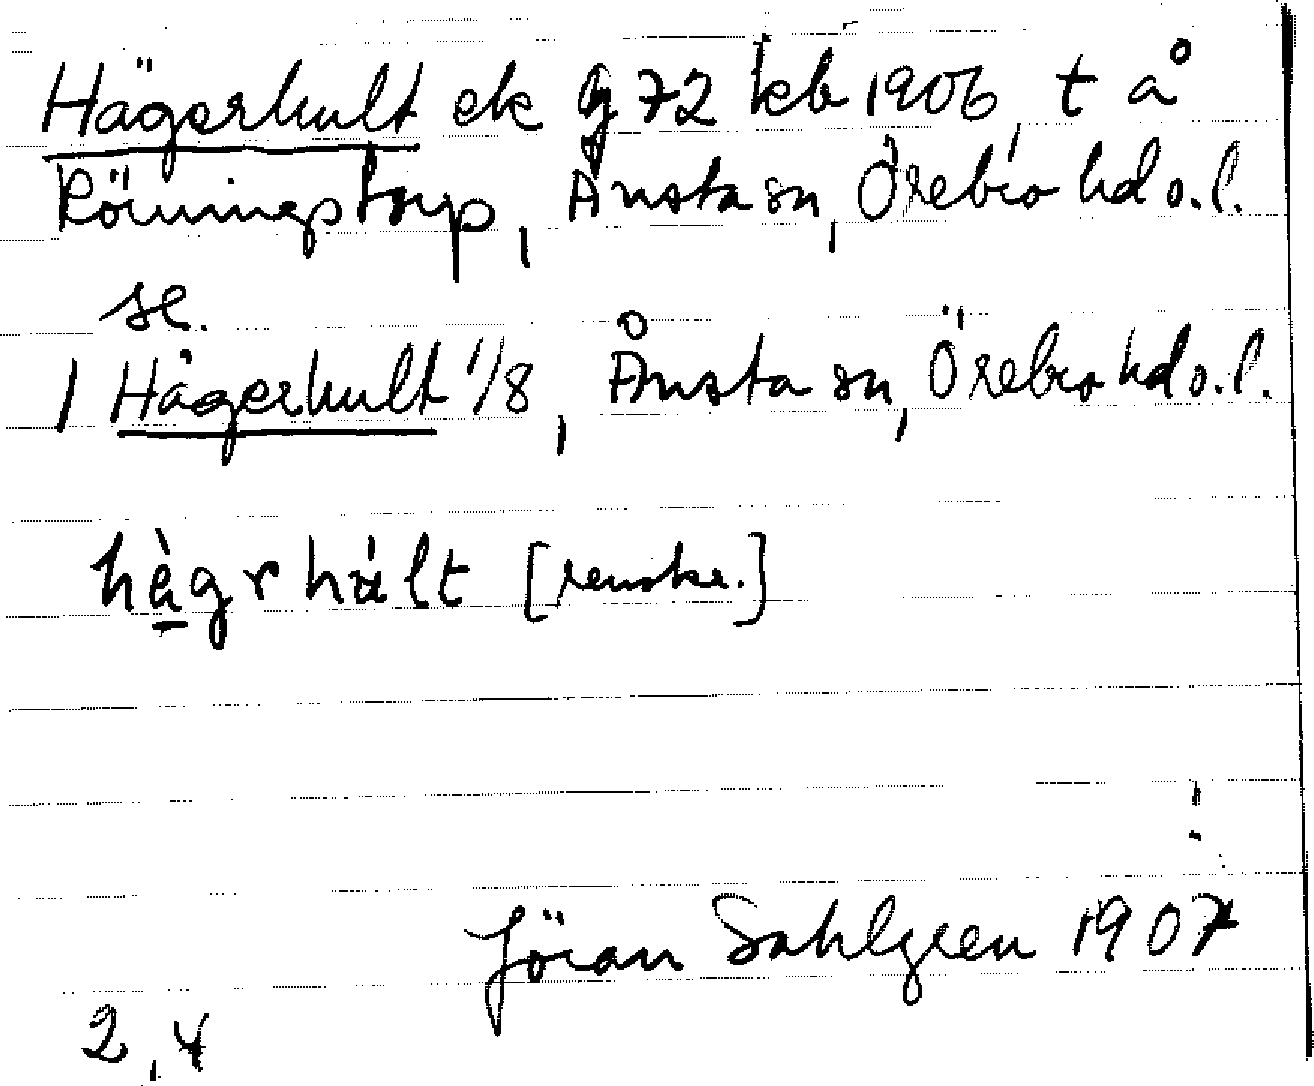 Hägerhult ek g 72 kb 1906, t å
Rönningstorp, Ånsta sn, Örebro hd o. l.
se.
1 Hägerhult 1/8, Ånsta sn, Örebro hd o. l.
hàgr hált [renskr.]
Jöran Sahlgren 1907
2, 4